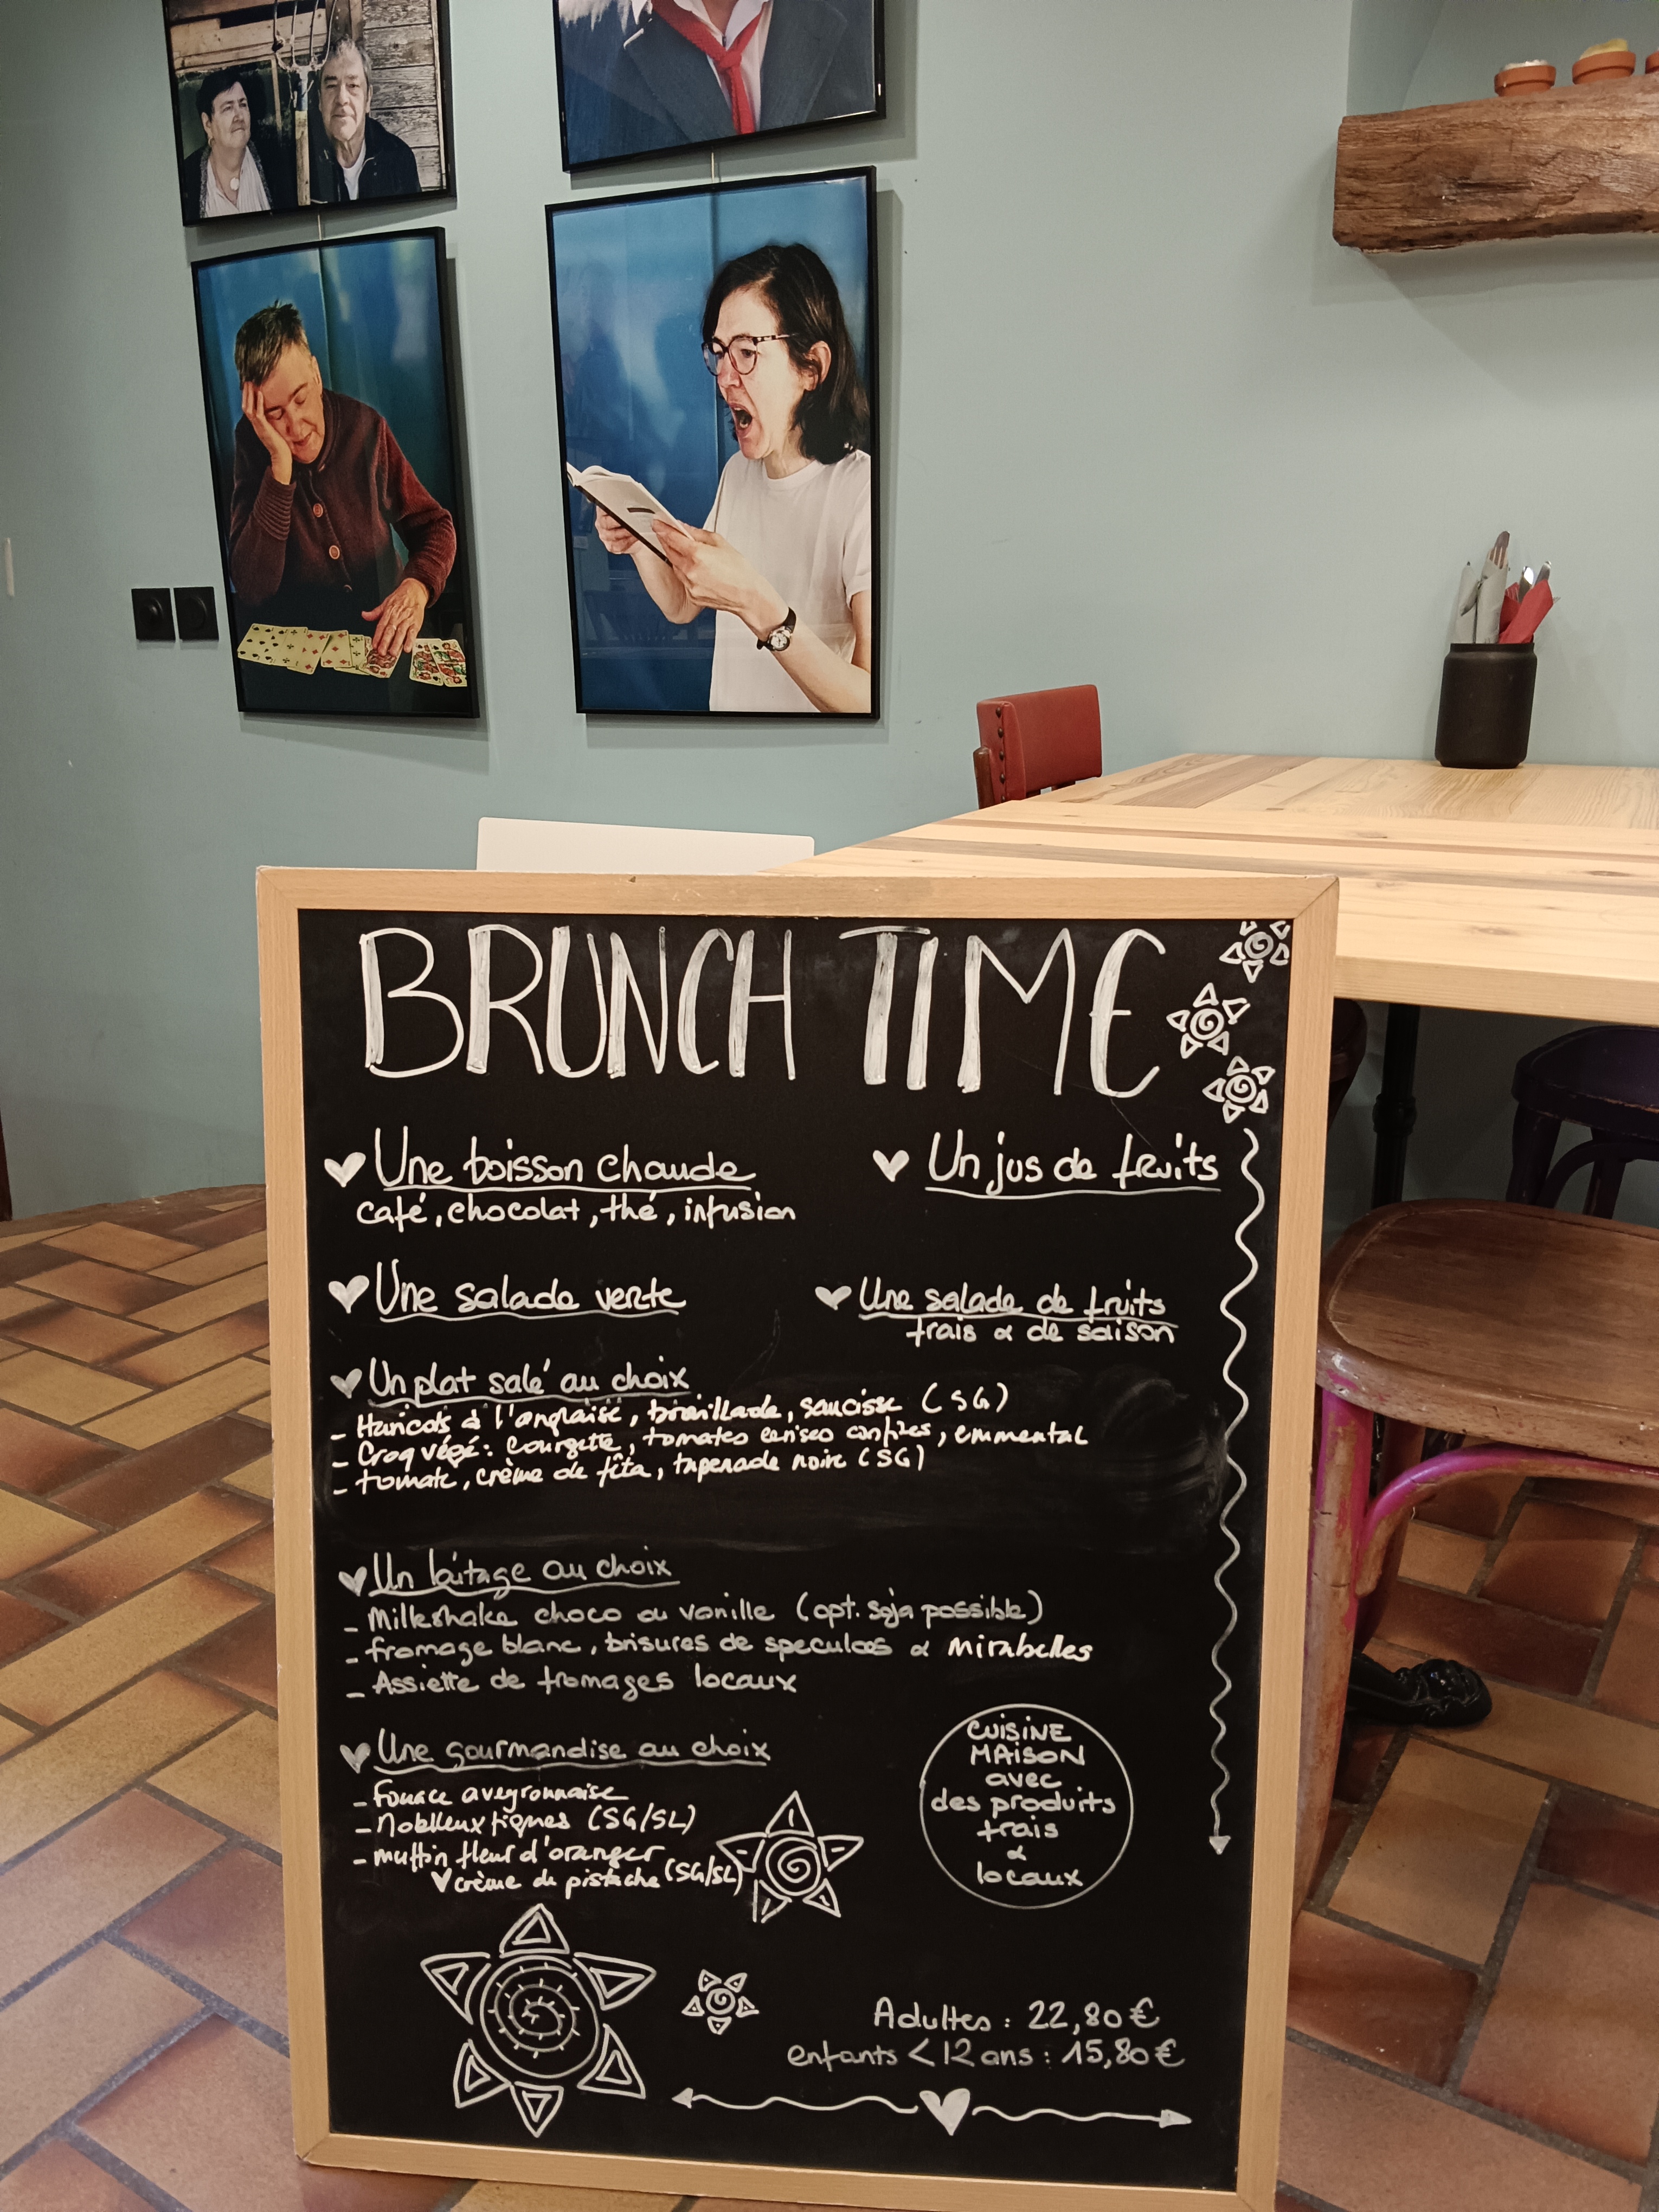 BRUNCH TIME
Une boisson chaude
café, chocolat, thé, infusion
Un jus de fruits
Une salade verte
Une salade de fruits
frais & de saison
Un plat salé au choix
- Haricots à l'anglaise, brouillade, saucisse (SG)
- Croq végé: courgette, tomates cerises confites, emmental
- tomate, crème de fêta, tapenade noire (SG)
Un laitage au choix
- Milkshake choco ou vanille (opt. soja possible)
- fromage blanc, brisures de speculoos & Mirabelles
- Assiette de fromages locaux
Une gourmandise au choix
- Fouace aveyronnaise
- (SG/SL)
- muffin fleur d'oranger
crème de pistache (SG/SL)
CUISINE
MAISON
avec
des produits
frais
&
locaux
Adultes : 22,80 €
enfants < 12 ans : 15,80 €